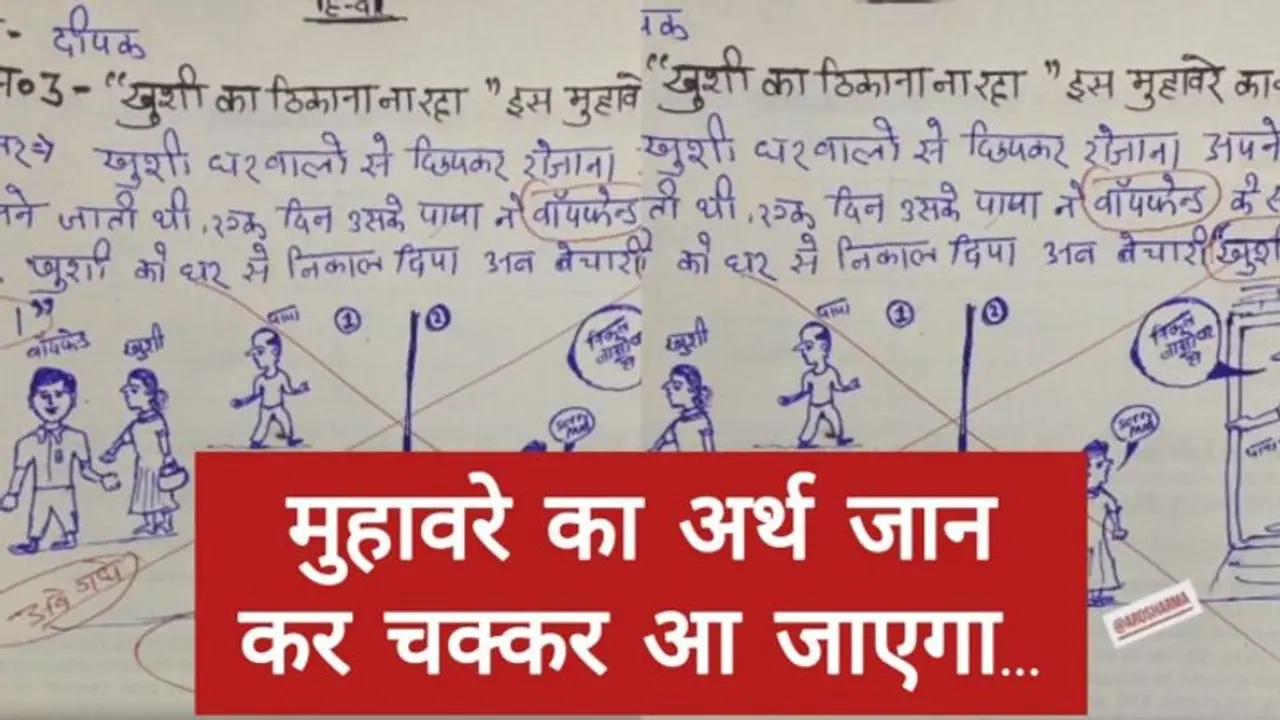 - दीपक
न०3- “खुशी का ठिकाना ना रहा ” इस मुहावरे
खुशी घरवालो से छिपकर रोजाना
जाती थी, एक दिन उसके पापा ने बॉयफ्रेन्ड
खुशी को घर से निकाल दिया अब बेचारी
।”
बॉयफ्रेंड खुशी पापा ① ②
sorry पापा
अबे गधे
“खुशी का ठिकाना ना रहा ” इस मुहावरे का
खुशी घरवालो से छिपकर रोजाना अपने
ती थी, एक दिन उसके पापा ने बॉयफ्रेन्ड के
को घर से निकाल दिया अब बेचारी खुशी
खुशी पापा ① ② निकल
sorry पापा
पापा
@AROSHARMA
मुहावरे का अर्थ जान
कर चक्कर आ जाएगा...